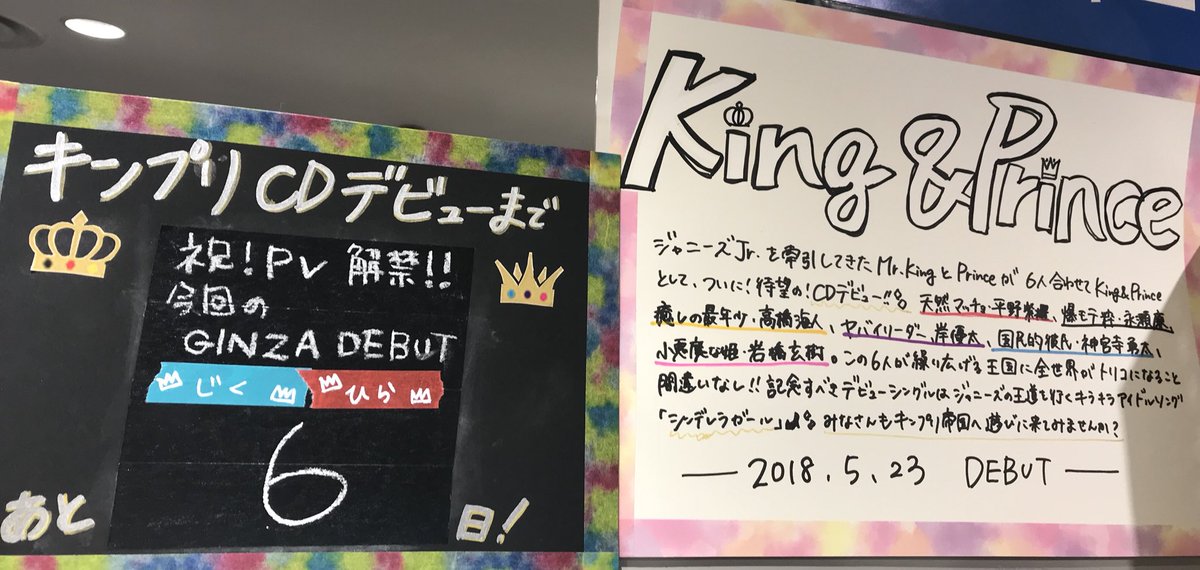 キンプリCDデビューまで
祝！PV 解禁!!
今回の
GINZA DEBUT
じぐ ひら
あと 6 日！
King & Prince
ジャニーズJr.を牽引してきたMr.KingとPrinceが6人合わせてKing&Prince
として、ついに！待望の！CDデビュー!! 天然マッチョ・平野紫耀、爆モテ粋・永瀬廉、
癒しの最年少・髙橋海人、ヤバイリーダー、岸優太、国民的彼氏・神宮寺勇太、
小悪魔な姫・岩橋玄樹。この6人が繰り広げる王国に全世界がトリコになること
間違いなし!! 記念すべきデビューシングルはジャニーズの王道を行くキラキラアイドルソング
「シンデレラガール」 みなさんもキンプリ帝国へ遊びに来てみませんか？
2018.5.23 DEBUT